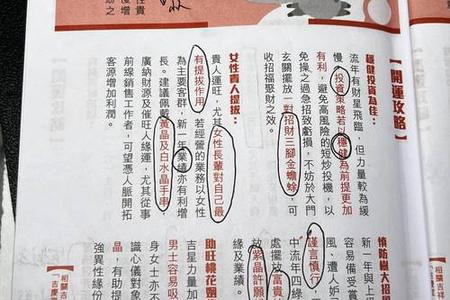 性貴
慢增
動之
【開運攻略】
穩健投資為佳：
流年有財星飛臨，但力量較為緩
慢，投資策略若以穩健為前提更加
有利，避免高風險的短炒投機，以
免操之過急招致虧損，不妨於大門
玄關擺放一對招財三腳金蟾蜍，可
收招福聚財之效。
女性貴人提拔：
貴人運旺，尤其女性長輩對自己最
有提拔作用，若經營的業務以女性
為主要客群，新一年業績亦有利增
長。建議佩戴黃晶及白水晶手串，
廣納財源及催旺人緣運，尤其從事
前線銷售工作者，可望憑人脈開拓
客源增加利潤。
慎防樹大招風
新一年與上
容易備受賞
風、遭人
謹言慎行
中流年四綠
處擺放富貴
放紫晶許願
緣及業績。
助旺桃花姻
吉星力量加
男士容易吸
身女士亦不
識心儀對象
晶，有助提
強異性緣份
【相關吉祥
「吉慶